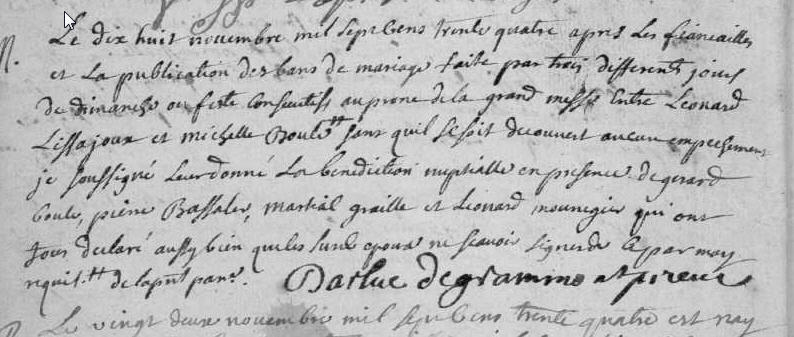 Le dix huit novembre mil sept cens trente quatre apres les fiancailles
et La publication des bans de mariage faite par trois differents jours
de dimanche ou feste consecutifs au prone de la grand messe Entre Leonard
Lissajoux et michelle Boule sans quil se soit decouvert aucun empechement
je soussigné leur donné La benediction nuptialle en presence de gerard
boule, pierre Bassaler, martial graille et Leonard mounegier qui ont
tous declaré aussy bien que les epoux ne scavoir signer de ce par moy
requis de la
Le vingt deux novembre mil sept cens trente quatre est nay